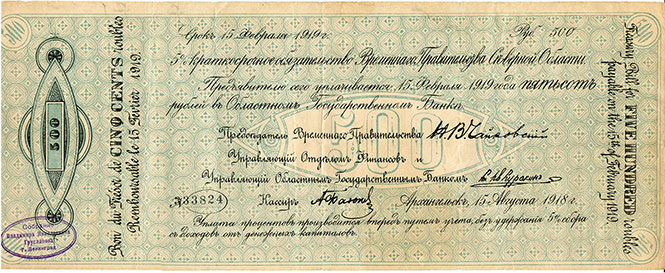 Срокъ 15 Февраля 1919 г. Руб. 500
5% краткосрочное обязательство Временнаго Правительства Сѣверной Области.
Предъявителю сего уплачивается 15 Февраля 1919 года пятьсотъ
рублей въ Областномъ Государственномъ Банкѣ.
500
Предсѣдатель Временнаго Правительства Н. В. Чайковскій
Управляющій Отдѣломъ Финансовъ и
Управляющій Областнымъ Государственнымъ Банкомъ
Кассиръ
33824
Архангельскъ, 15 Августа 1918 г.
Уплата процентовъ производится впередъ путемъ учета, безъ удержанія 5% сбора
съ доходовъ отъ денежныхъ капиталовъ.
500
Bon du Trésor de CINQ CENTS roubles
Remboursable le 15 Février 1919.
Treasury Bill for FIVE HUNDRED roubles
payable on the 15th of February 1919.
Собрание
Владимира
г. Ленинград